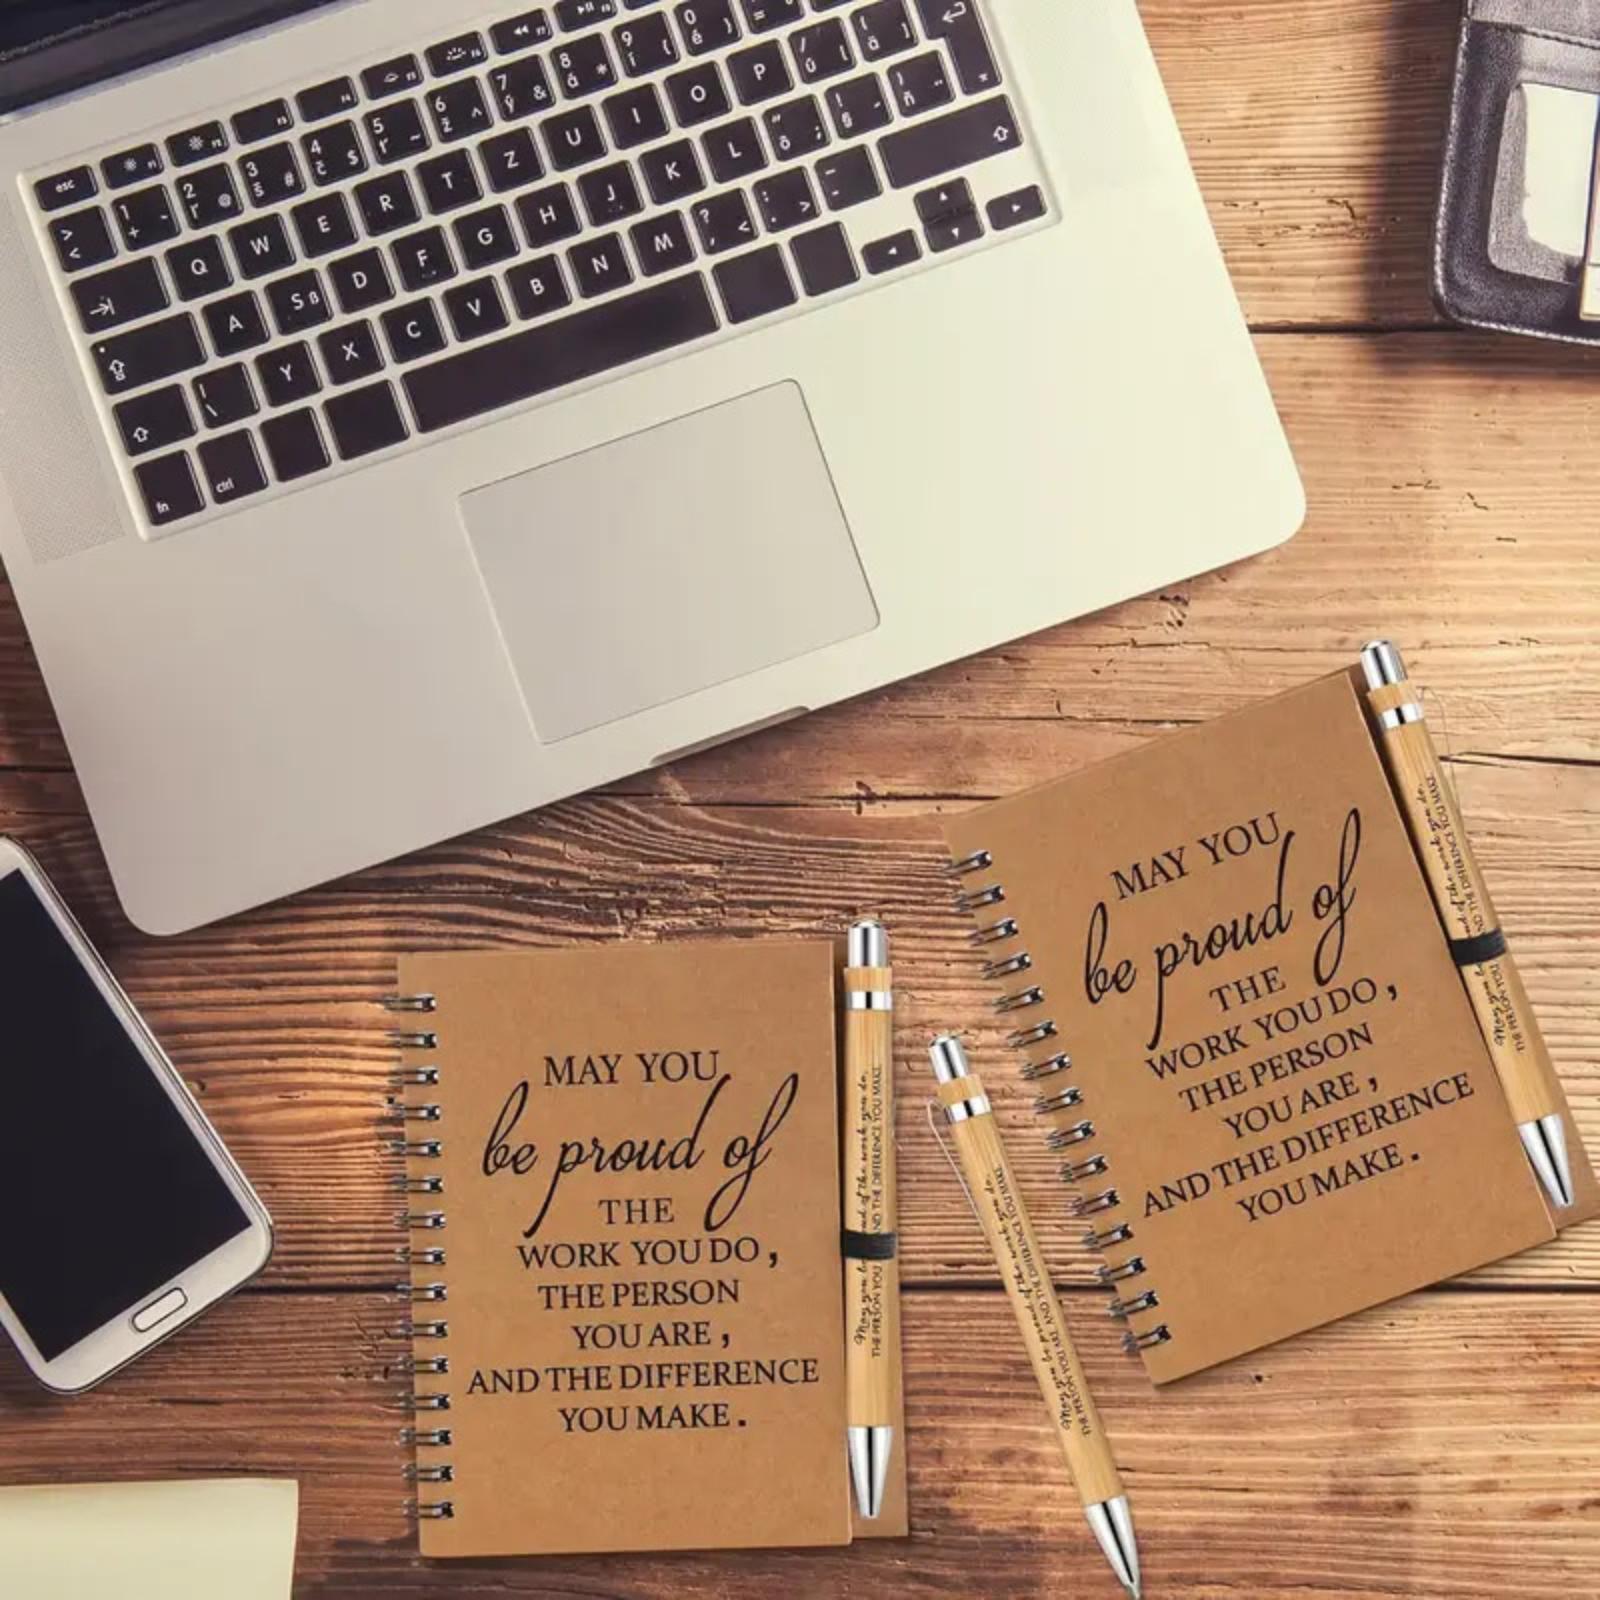 esc
> 1 ~ 2 @ 3 # 4 $ 5 ~ 6 ^ 7 & 8 * 9 ( 0 ) = / ( 
< + ľ š č ť ž ý á í é ú ä
Q W E R T Z U I O P
A S ß D F G H J K L ô ; § ň
Y X C V B N M ? , < : . > _ -
fn ctrl
MAY YOU
be proud of
THE
WORK YOU DO,
THE PERSON
YOU ARE,
AND THE DIFFERENCE
YOU MAKE.
May you be proud of the work you do,
THE PERSON YOU AND THE DIFFERENCE YOU MAKE
MAY YOU
be proud of
THE
WORK YOU DO,
THE PERSON
YOU ARE,
AND THE DIFFERENCE
YOU MAKE.
May you be proud of the work you do,
THE PERSON YOU AND THE DIFFERENCE YOU MAKE
May you be proud of the work you do,
THE PERSON YOU ARE, AND THE DIFFERENCE YOU MAKE